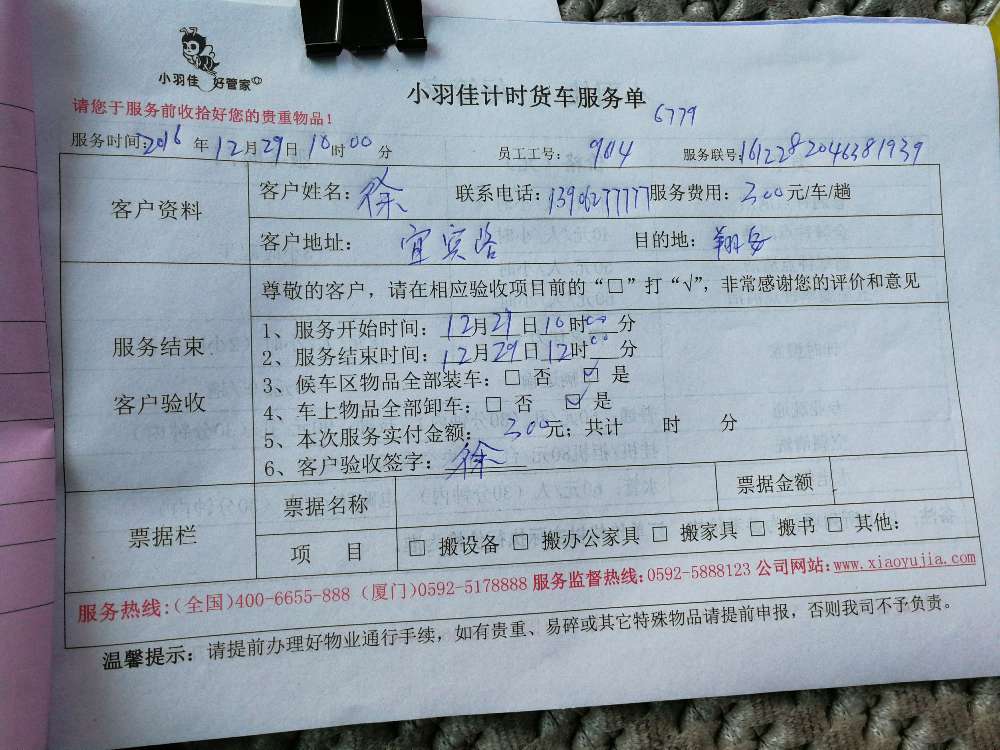 小羽佳 好管家
小羽佳计时货车服务单
6779
请您于服务前收拾好您的贵重物品！
服务时间：2016 年 12月29日 10时00分 员工工号： 904 服务联号：1612282046381939
客户资料
客户姓名：徐 联系电话：13906277777 服务费用：300元/车/趟
客户地址： 宜宾路 目的地：翔安
服务结束
客户验收
尊敬的客户，请在相应验收项目前的“□”打“√”，非常感谢您的评价和意见
1、服务开始时间：12月29日10时00分
2、服务结束时间：12月29日12时00分
3、候车区物品全部装车：□ 否 ☑ 是
4、车上物品全部卸车：□ 否 ☑ 是
5、本次服务实付金额： 300元；共计 时 分
6、客户验收签字：徐
票据栏
票据名称 票据金额
项 目 □ 搬设备 □ 搬办公家具 □ 搬家具 □ 搬书 □ 其他：
服务热线：(全国)400-6655-888 (厦门)0592-5178888 服务监督热线：0592-5888123 公司网站：www.xiaoyujia.com
温馨提示：请提前办理好物业通行手续，如有贵重、易碎或其它特殊物品请提前申报，否则我司不予负责。